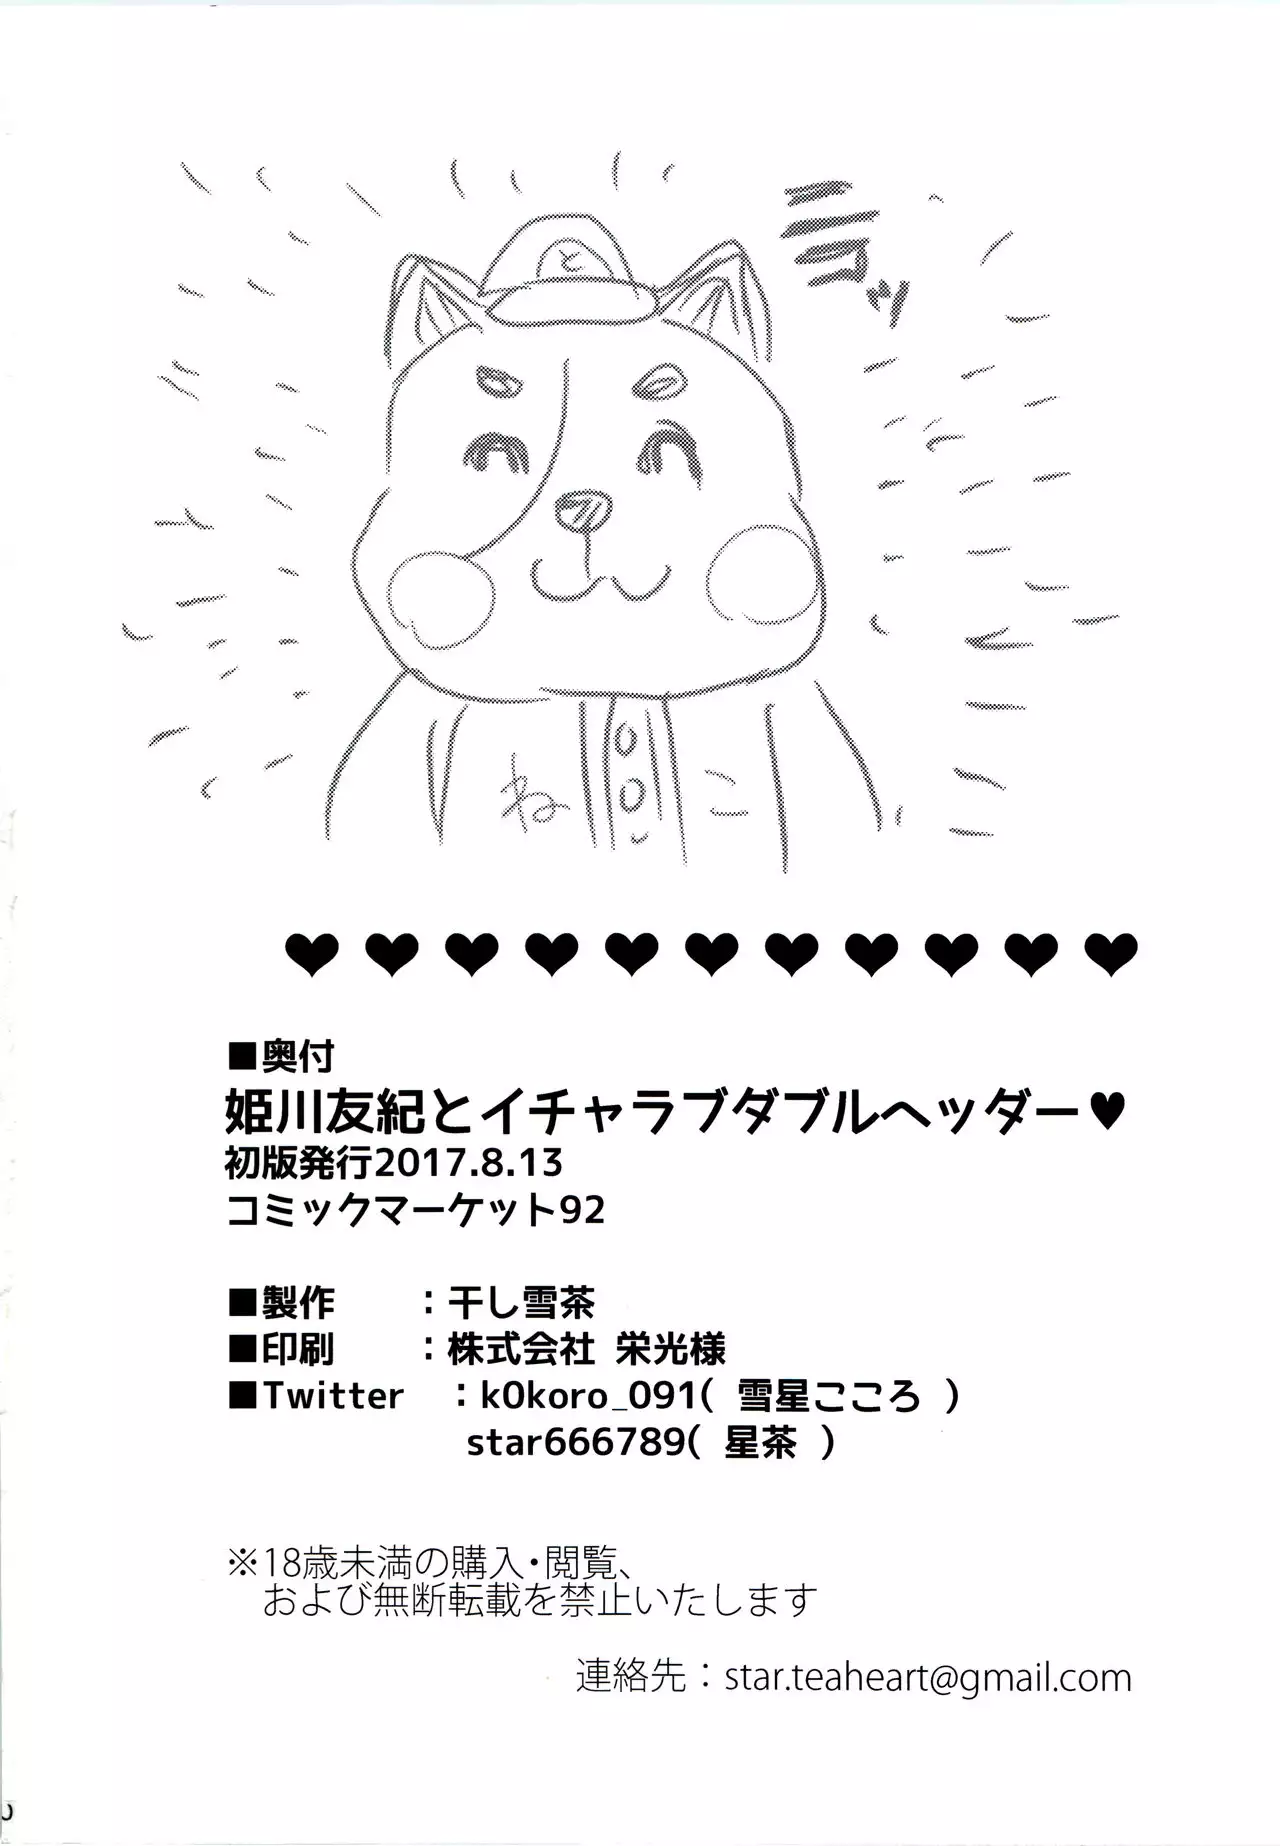 ニコッ
と
ね こ
♥ ♥ ♥ ♥ ♥ ♥ ♥ ♥ ♥ ♥ ♥
■奥付
姫川友紀とイチャラブダブルヘッダー♥
初版発行2017.8.13
コミックマーケット92
■製作 ：干し雪茶
■印刷 ：株式会社 栄光様
■Twitter ：k0koro_091( 雪星こころ )
star666789( 星茶 )
※18歳未満の購入・閲覧、
および無断転載を禁止いたします
連絡先：star.teaheart@gmail.com